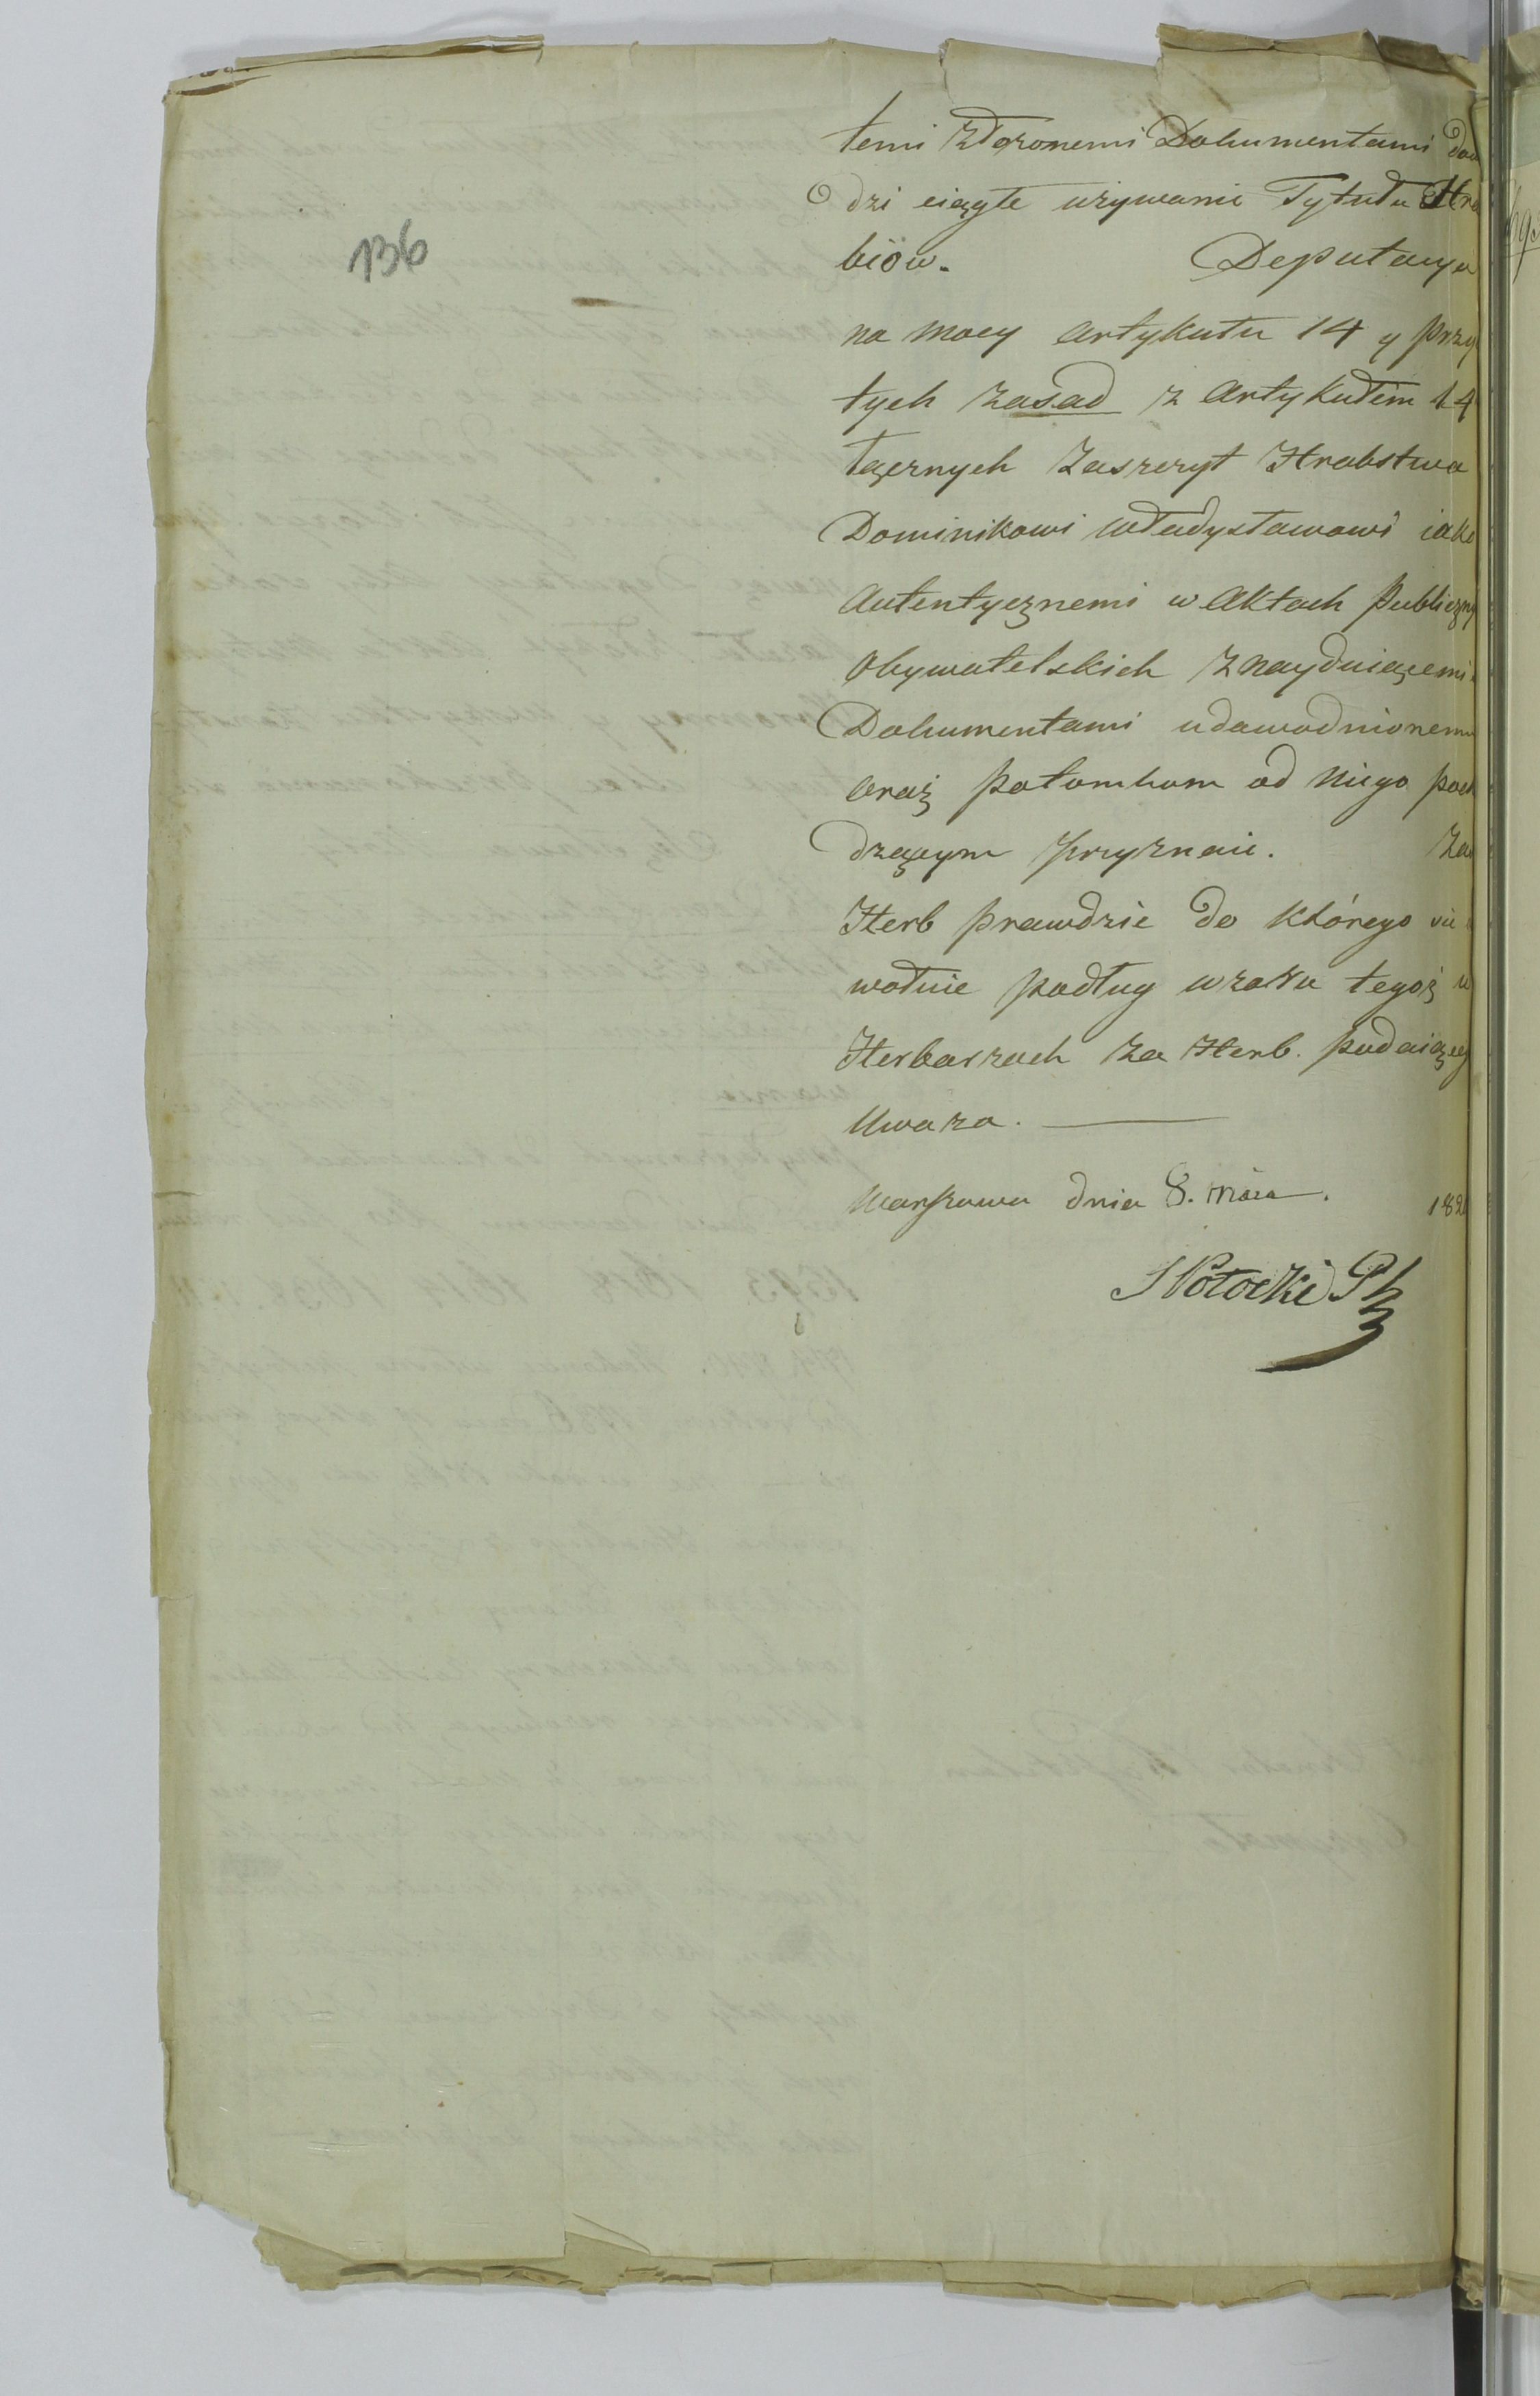 136
temi złozonemi Dokumentami dow
dzi ciągłe używanie Tytułu Hra
biów. Deputacya
na mocy artykułu 14 y przy
tych zasad z Artykułem 14
łącznych Zaszczyt Hrabstwa
Dominikowi Władysławowi iako
Autentycznemi w Aktach Publiczny
Obywatelskich znayduiącemi
Dokumentami udowodnionemu
oraz Potomkom od niego poch
dzącym przyznaie. Za
Herb prawdzie do którego się
wołuie podług wzoru tegoż w
Herbarzach za Herb. podaiącey
Uwaza.
Warszawa dnia 8. 182
SPotocki